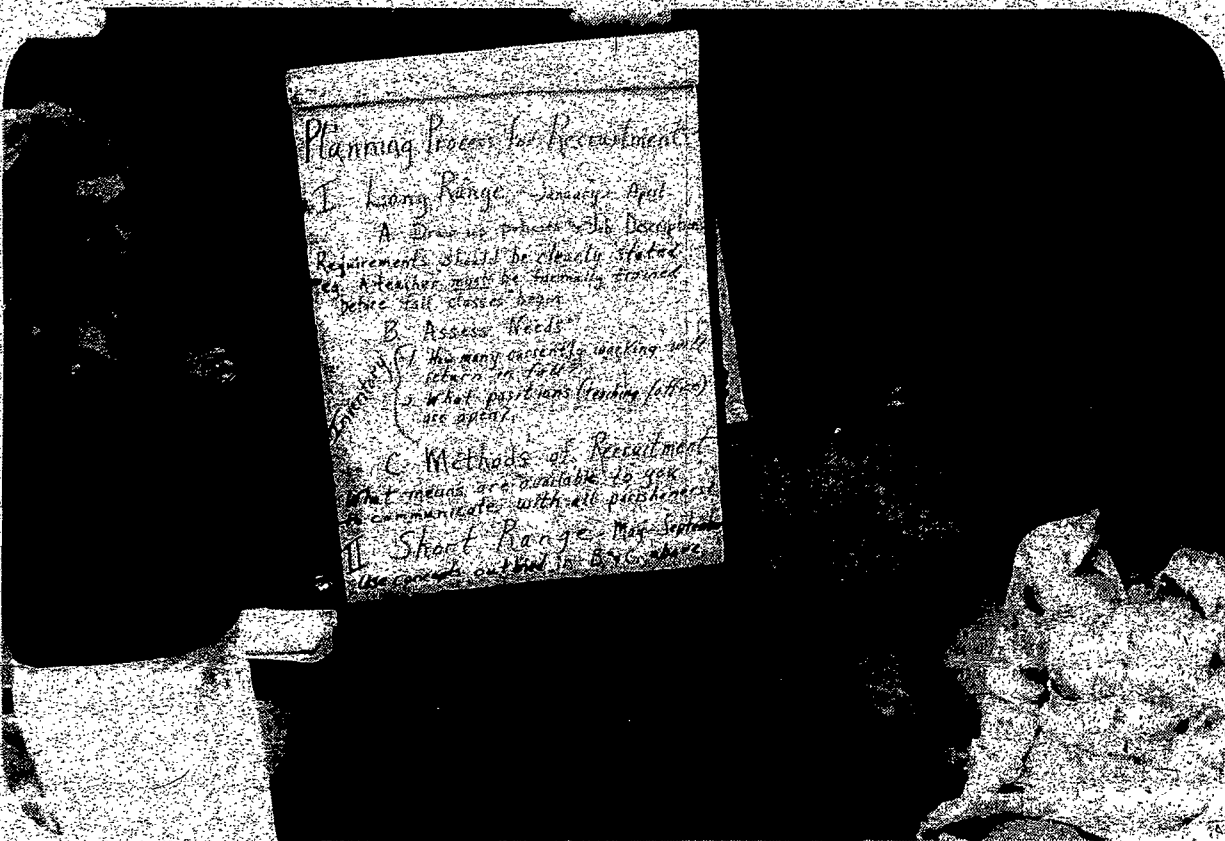 Planning Process for Recruitment
I Long Range - January - April
A. Draw up policies & Job Description
Requirements should be clearly stated
eg. A teacher must be formally trained
before fall classes begin
B. Assess Needs
Inventory
1. How many currently working will
return in fall?
2. What positions (teaching/office)
are open?
C. Methods of Recruitment
What means are available to you
to communicate with all parishoners?
II Short Range - May - September
Use concepts outlined in B & C above